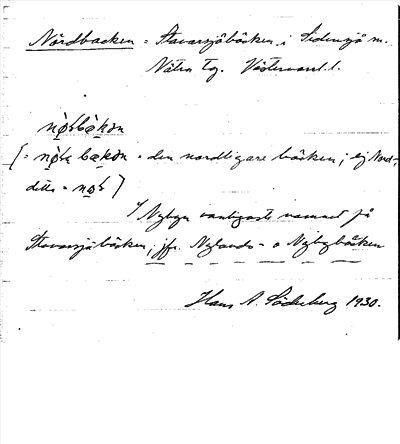 Nördbacken = Stavarsjöbäcken i Sidensjö sn.
Nätra tg. Västernorrl. l.
nø̀ɽbækɔn
[= nø̀ɽe bækɔn = den nordligare bäcken; ej Nord-,
detta = nọɽ ]
i Nybyn vanligaste namnet på
Stavarsjöbäcken; jfr. Nylands- o Nybybäcken
Hans A. Söderberg 1930.